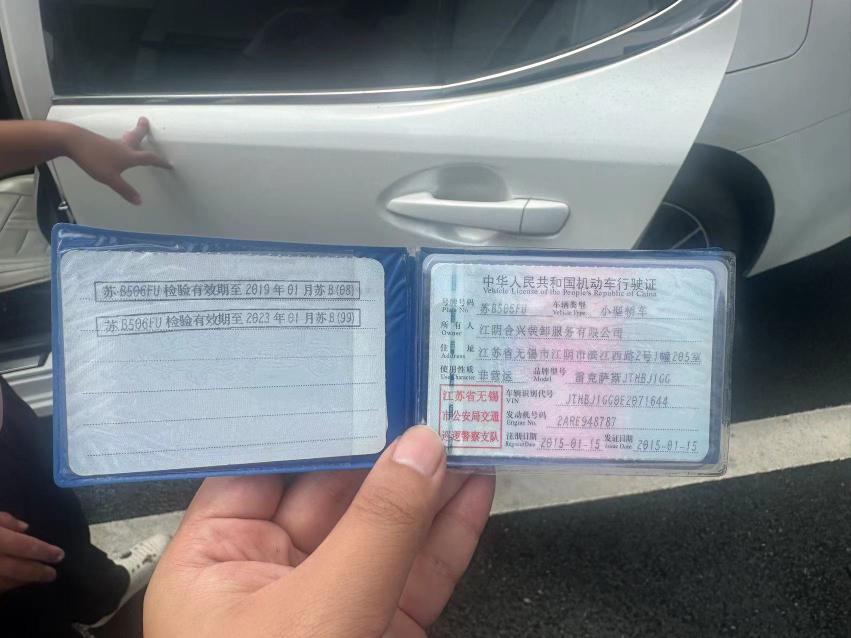 苏B506FU检验有效期至2019年01月苏B(08)
苏B506FU检验有效期至2023年01月苏B(99)
中华人民共和国机动车行驶证
Vehicle License of the People's Republic of China
号牌号码 苏B506FU 车辆类型 小型轿车
Plate No. Vehicle Type
所有人 江阴合兴装卸服务有限公司
Owner
住址 江苏省无锡市江阴市滨江西路2号1幢205室
Address
使用性质 非营运 品牌型号 雷克萨斯JTHBJ1GG
Use Character Model
江苏省无锡市公安局交通巡逻警察支队
车辆识别代号 JTHBJ1GG0F2071644
VIN
发动机号码 2ARE948787
Engine No.
注册日期 2015-01-15 发证日期 2015-01-15
Register Date Issue Date